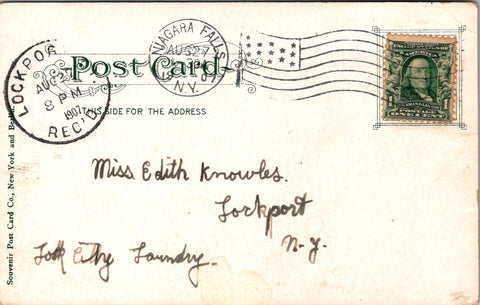 NIAGARA FALLS
AUG 27
N.Y.
Post Card
LOCKPO
AUG 2
8 PM
1907
REC'D
THIS SIDE FOR THE ADDRESS
FRANKLIN
ONE CENT
Miss Edith Knowles.
Lockport
N-Y-
Lock City Laundry-
Souvenir Post Card Co., New York and